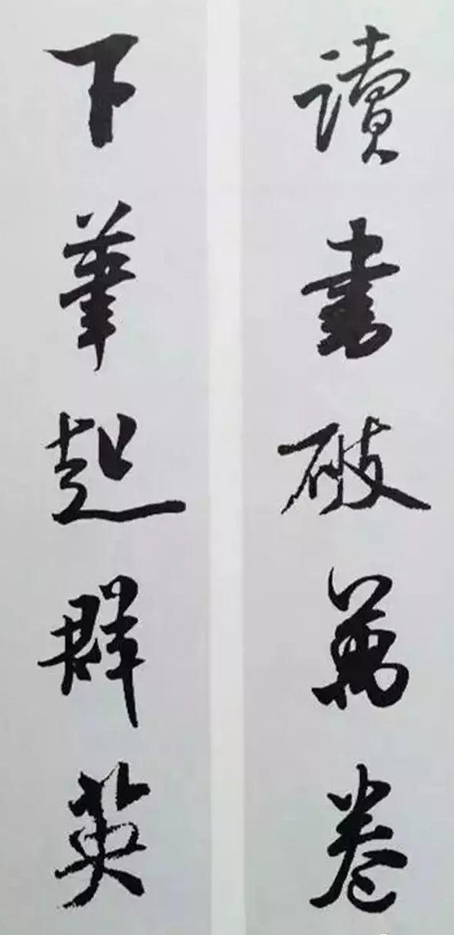 讀書破萬卷
下筆超群英